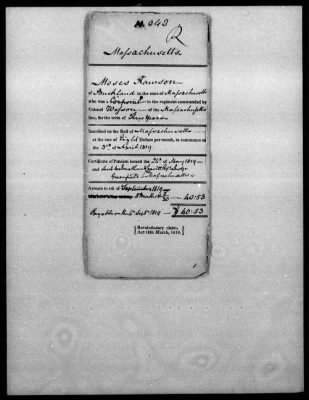 R
Massachusetts
Moses Rawson
of Buckland in the state of Massachusetts
who was a Corporal in the regiment commanded by
Colonel Wesson of the Massachusetts
line, for the term of Three Years
Inscribed on the Roll of Massachusetts
at the rate of Eight Dollars per month, to commence on
the 3rd of April 1819
Certificate of Pension issued the of May 1819
and sent to
Greenfield Massachusetts
Arrears to 4th of September 1819
40:53
Payable on the 4 Sept 1819 $40:53
{Revolutionary claim,
Act 18th March, 1818.}